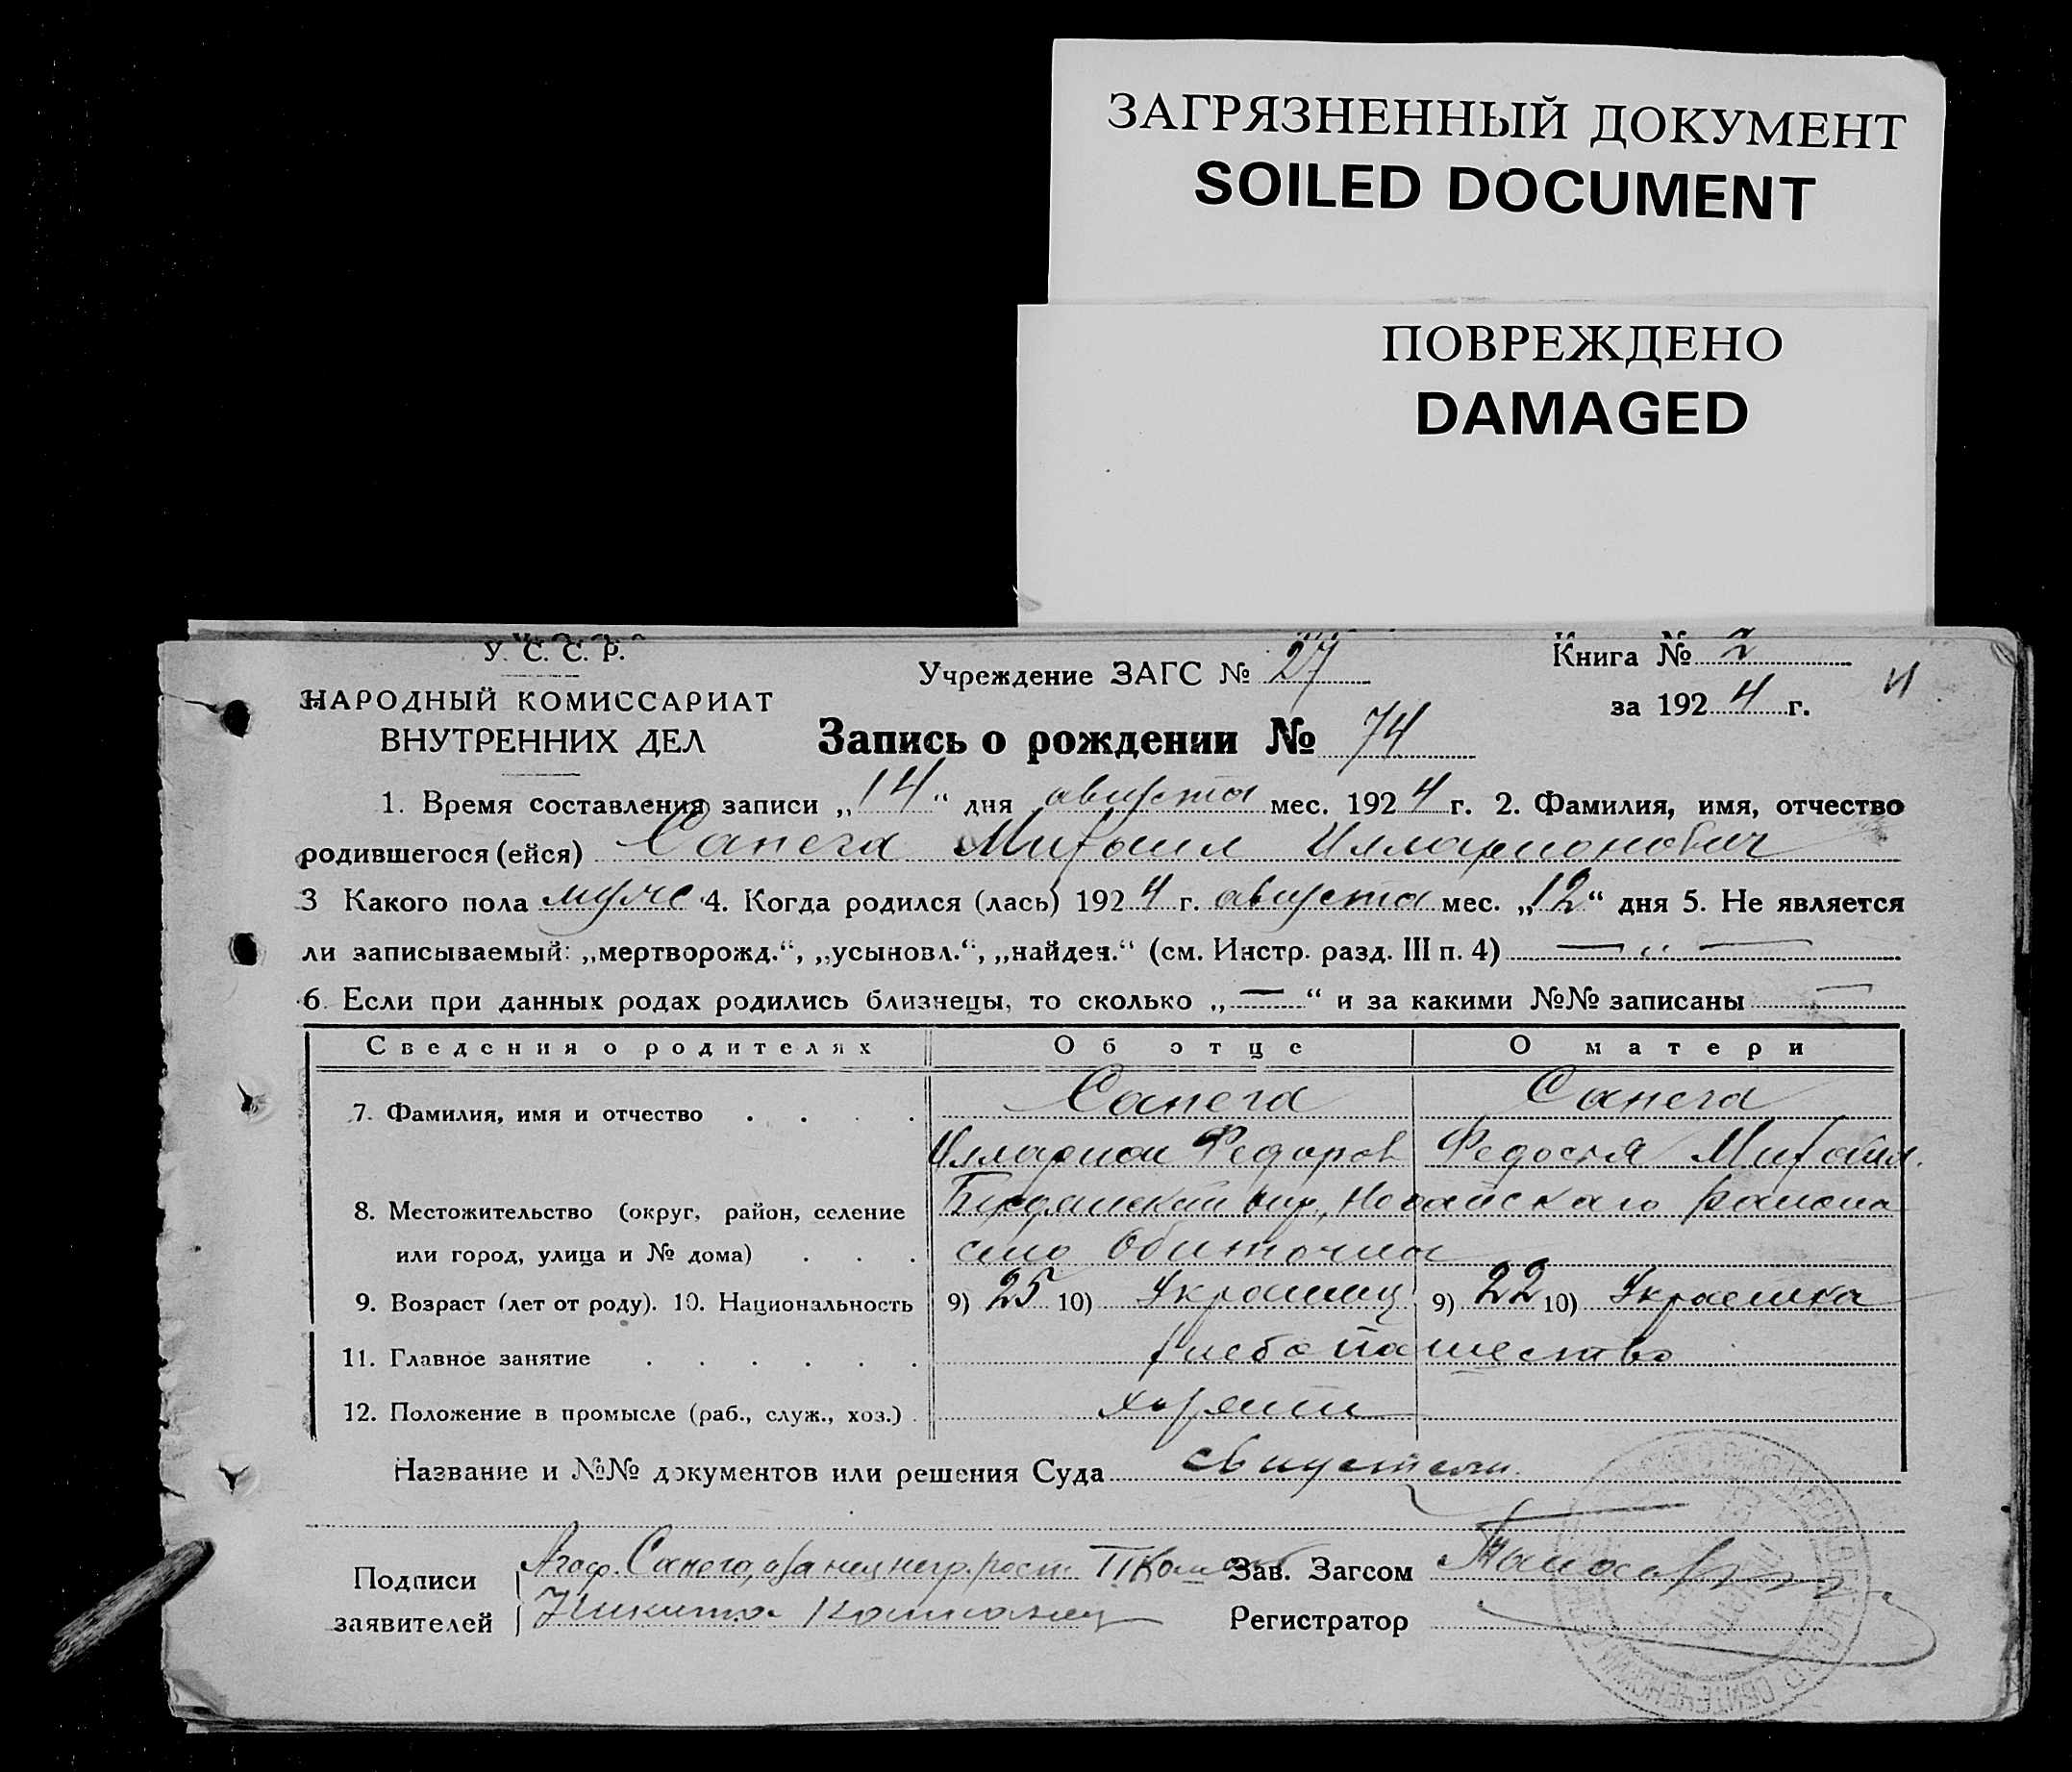 ЗАГРЯЗНЕННЫЙ ДОКУМЕНТ
SOILED DOCUMENT
ПОВРЕЖДЕНО
DAMAGED
У. С. С. Р.
НАРОДНЫЙ КОМИССАРИАТ
ВНУТРЕННИХ ДЕЛ
Учреждение ЗАГС № 27
Книга № 2
за 1924 г.
Запись о рождении № 74
1. Время составления записи „14“ дня августа мес. 1924 г. 2. Фамилия, имя, отчество
родившегося (ейся) Сапега Михаил Илларионович
3 Какого пола муже 4. Когда родился (лась) 1924 г. августа мес. „12“ дня 5. Не является
ли записываемый: „мертворожд.“, „усыновл.“, „найден.“ (см. Инстр. разд. III п. 4) — „ —
6. Если при данных родах родились близнецы, то сколько „—“ и за какими №№ записаны —
Сведения о родителях Об отце О матери
7. Фамилия, имя и отчество . . . . Сапега Сапега
Илларион Федоров Федосья Михайл.
8. Местожительство (округ, район, селение Бердянский окр, Ногайскаго района
или город, улица и № дома) . . . село Обиточна
9. Возраст (лет от роду). 10. Национальность 9) 25 10) Украинец 9) 22 10) Украинка
11. Главное занятие . . . . . . хлебопашество
12. Положение в промысле (раб., служ., хоз.) . хозяин
Название и №№ документов или решения Суда
Подписи Сапега, Зав. Загсом
заявителей Никита Регистратор